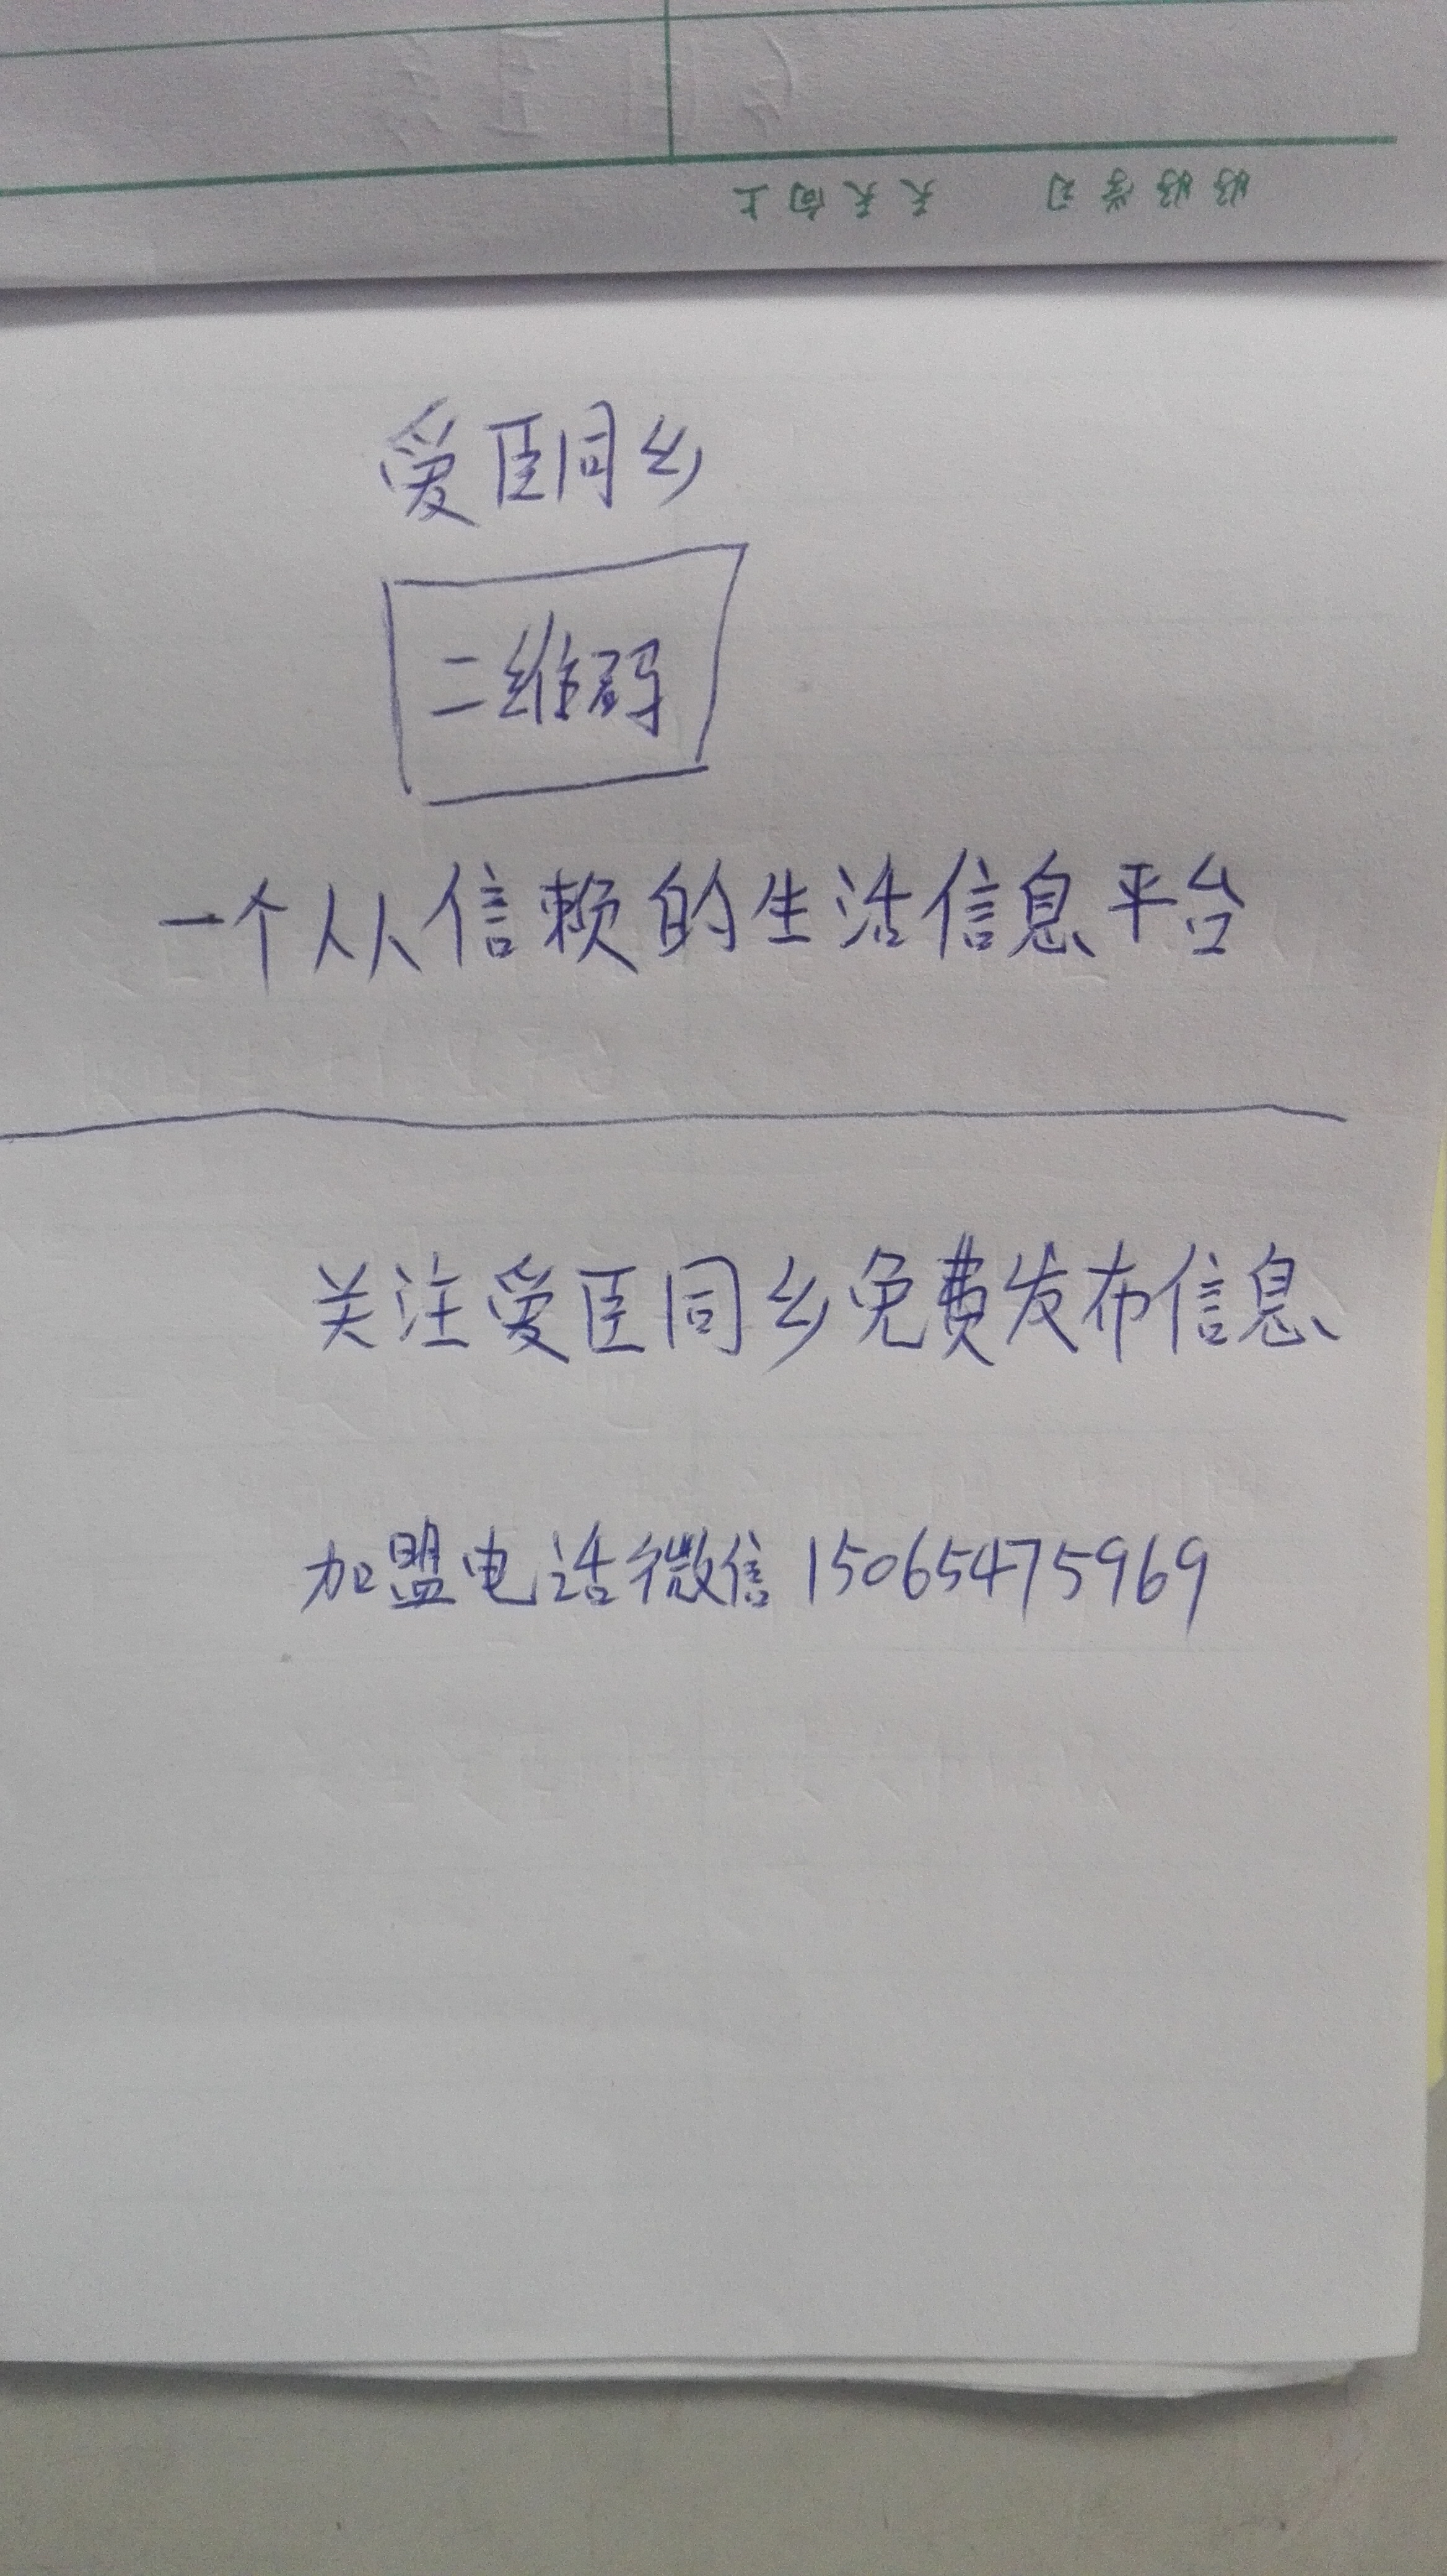 好好学习 天天向上
爱臣同乡
二维码
一个人人信赖的生活信息平台
关注爱臣同乡免费发布信息
加盟电话微信15065475969